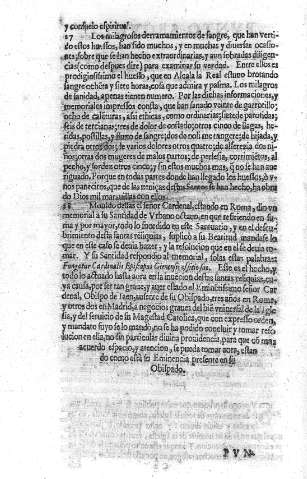 y consuelo espiritual.
27 Los milagrosos derramamientos de sangre, que han verti-
do estos huessos, han sido muchos, y en muchas y diuersas ocasio-
nes; sobre que se han hecho extraordinarias, y aun sobradas diligen-
cias (como despues dire) para examinar su verdad. Entre ellos es
prodigiosissimo el huesso, que en Alcala la Real estuuo brotando
sangre ochẽta y siete horas; cosa que admira y pasma. Los milagros
de sanidad, apenas tienen numero. Por las dichas informaciones, y
memoriales impressos consta, que han sanado veinte de garrotillo;
ocho de calenturas, assi ethicas, como ordinarias; siete de
seis de tercianas; tres de dolor de costado; otros cinco de llagas, he-
ridas, postillas, y fluxo de sangre; dos de
piedra otros dos; de varios dolores otros quatro; de
ños; otras dos mugeres de malos partos; de perlesia, al
pecho, y sorden otros cinco; sin otros muchos mas, q̃ no se han aue
riguado. Porque en todas partes donde han llegado los huessos, ò v-
nos panecitos, que de las de estos Santos se han hecho, ha obra
do Dios mil marauillas con ellos.
28 Mouido destas el señor Cardenal, estando en Roma, dio vn
memorial a su Santidad de Vrbano octauo, en que refiriendo en su-
ma y por mayor, todo lo sucedido en este Santuario, y en el descu-
brimiento desta santas reliquias, suplicò a su Beatitud mandasse lo
que en este caso se deuia hazer, y la resolucion que en èl se deuia to-
mar. Y su Santidad respondio al memorial, solas estas palabras:
Fungatur Cardinalis Episcopus Giennen. officio suo. Esse es el hecho, y
todo lo actuado hasta aora en la inuencion destas santas reliquias, cu-
ya causa, por ser tan graue, y auer estado el Eminentissimo señor Car
denal, Obispo de Iaen, ausente de su Obispado, tres años en Roma,
y otros dos en Madrid, a negocios graues del biẽ vniuersal de la Igle
sia, y del seruicio de su Magestad Catolica, que con expresso orden,
y mandato suyo se lo mandò, no se ha podido concluir y tomar reso
lucion en ella, no sin particular diuina prouidencia, para que cõ mas
acuerdo espacio, y atencion, se pueda tomar aora, estan
do como està su Eminencia presente en su
Obispado.
P V N-